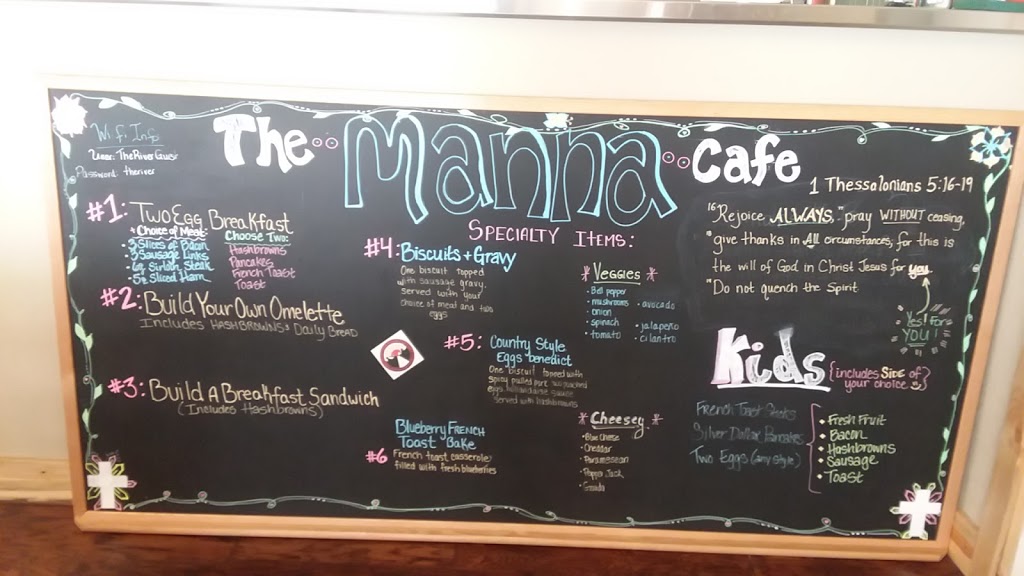 The Manna Cafe
Wifi Info
User: TheRiverGuest
Password: theriver
#1: Two Egg Breakfast
+ Choice of Meat:
3 Slices of Bacon
3 Sausage Links
6oz Sirloin Steak
Sliced Ham
Choose Two:
Hashbrowns
Pancakes
French Toast
Toast
#2: Build Your Own Omelette
Includes Hashbrowns & Daily Bread
#3: Build A Breakfast Sandwich
(Includes Hashbrowns)
Specialty Items:
#4: Biscuits + Gravy
One biscuit topped
with sausage gravy,
served with your
choice of meat and two
eggs
#5: Country Style
Eggs benedict
One biscuit topped with
spicy pulled pork, poached
eggs, hollandaise sauce
Served with hashbrowns
#6 Blueberry French
Toast Bake
French toast casserole
filled with fresh blueberries
* Veggies *
• Bell pepper
• mushrooms
• onion
• spinach
• tomato
• avocado
• jalapeño
• cilantro
* Cheesey *
• Blue Cheese
• Cheddar
• Parmesean
• Pepper Jack
• Gouda
1 Thessalonians 5:16-19
16 Rejoice ALWAYS, 17 pray WITHOUT ceasing,
18 give thanks in All circumstances; for this is
the will of God in Christ Jesus for you.
19 Do not quench the Spirit.
Yes! For
YOU!
Kids {includes Side of
your choice}
French Toast Sticks
Silver Dollar Pancakes
Two Eggs (any style)
• Fresh Fruit
• Bacon
• Hashbrowns
• Sausage
• Toast